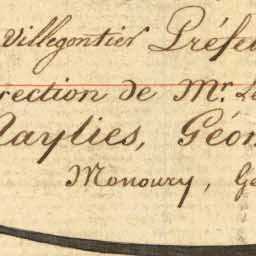 Villegontier Préfe
rection de Mr. L
aylies, Géom
Monoury, Gé